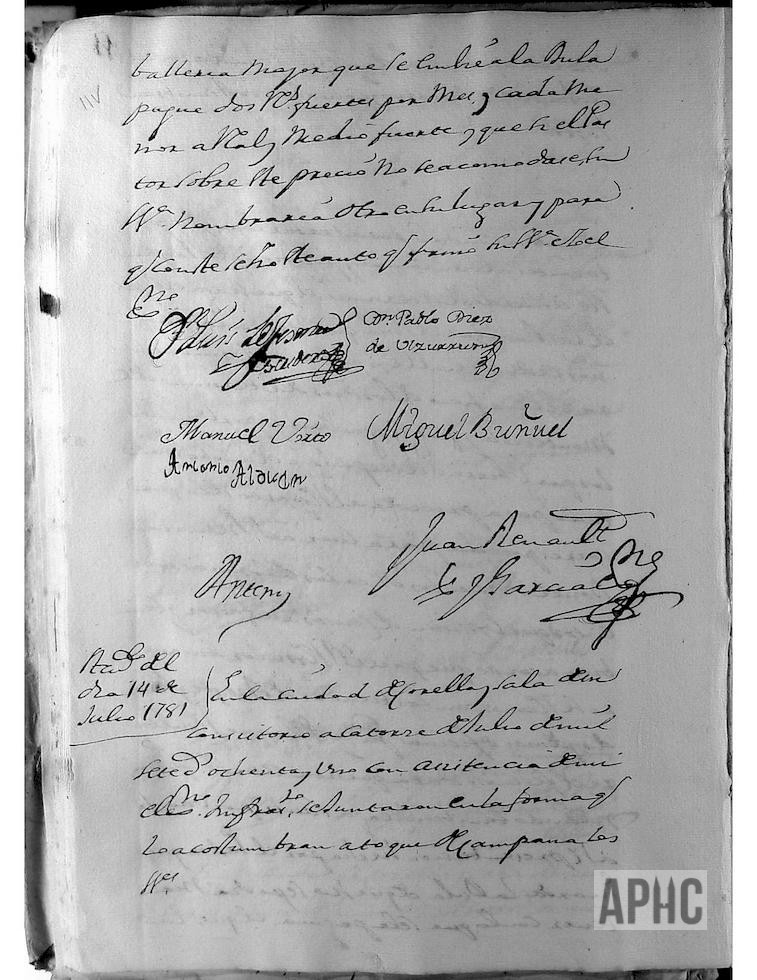 11
balleria Mayor que se embié a la Dula
pague dos Rs. fuertes por Mes, y cada Me
nor a Real y Medio fuerte, y que si el Pas
tor sobre este precio No se acomodase, su
Md. Nombraria otro en su lugar, y para
q conste se hizo este auto q firmó su Md. Yo el
Sno
Dn. Pablo Diez
de Vizurrum
Manuel Virto
Miguel Buñuel
Antonio Alduan
Juan Renault
y Garcia Sno
Ante my
dia 14 de
Julio 1781
En la ciudad de Corella, y Sala de su
Consistorio a Catorze de Julio de mil
sete.s ochenta, y uno con assistencia de mi
el Sno. Infrato. se Juntaron en la forma q
lo acostumbran a toque de Campana los
APHC